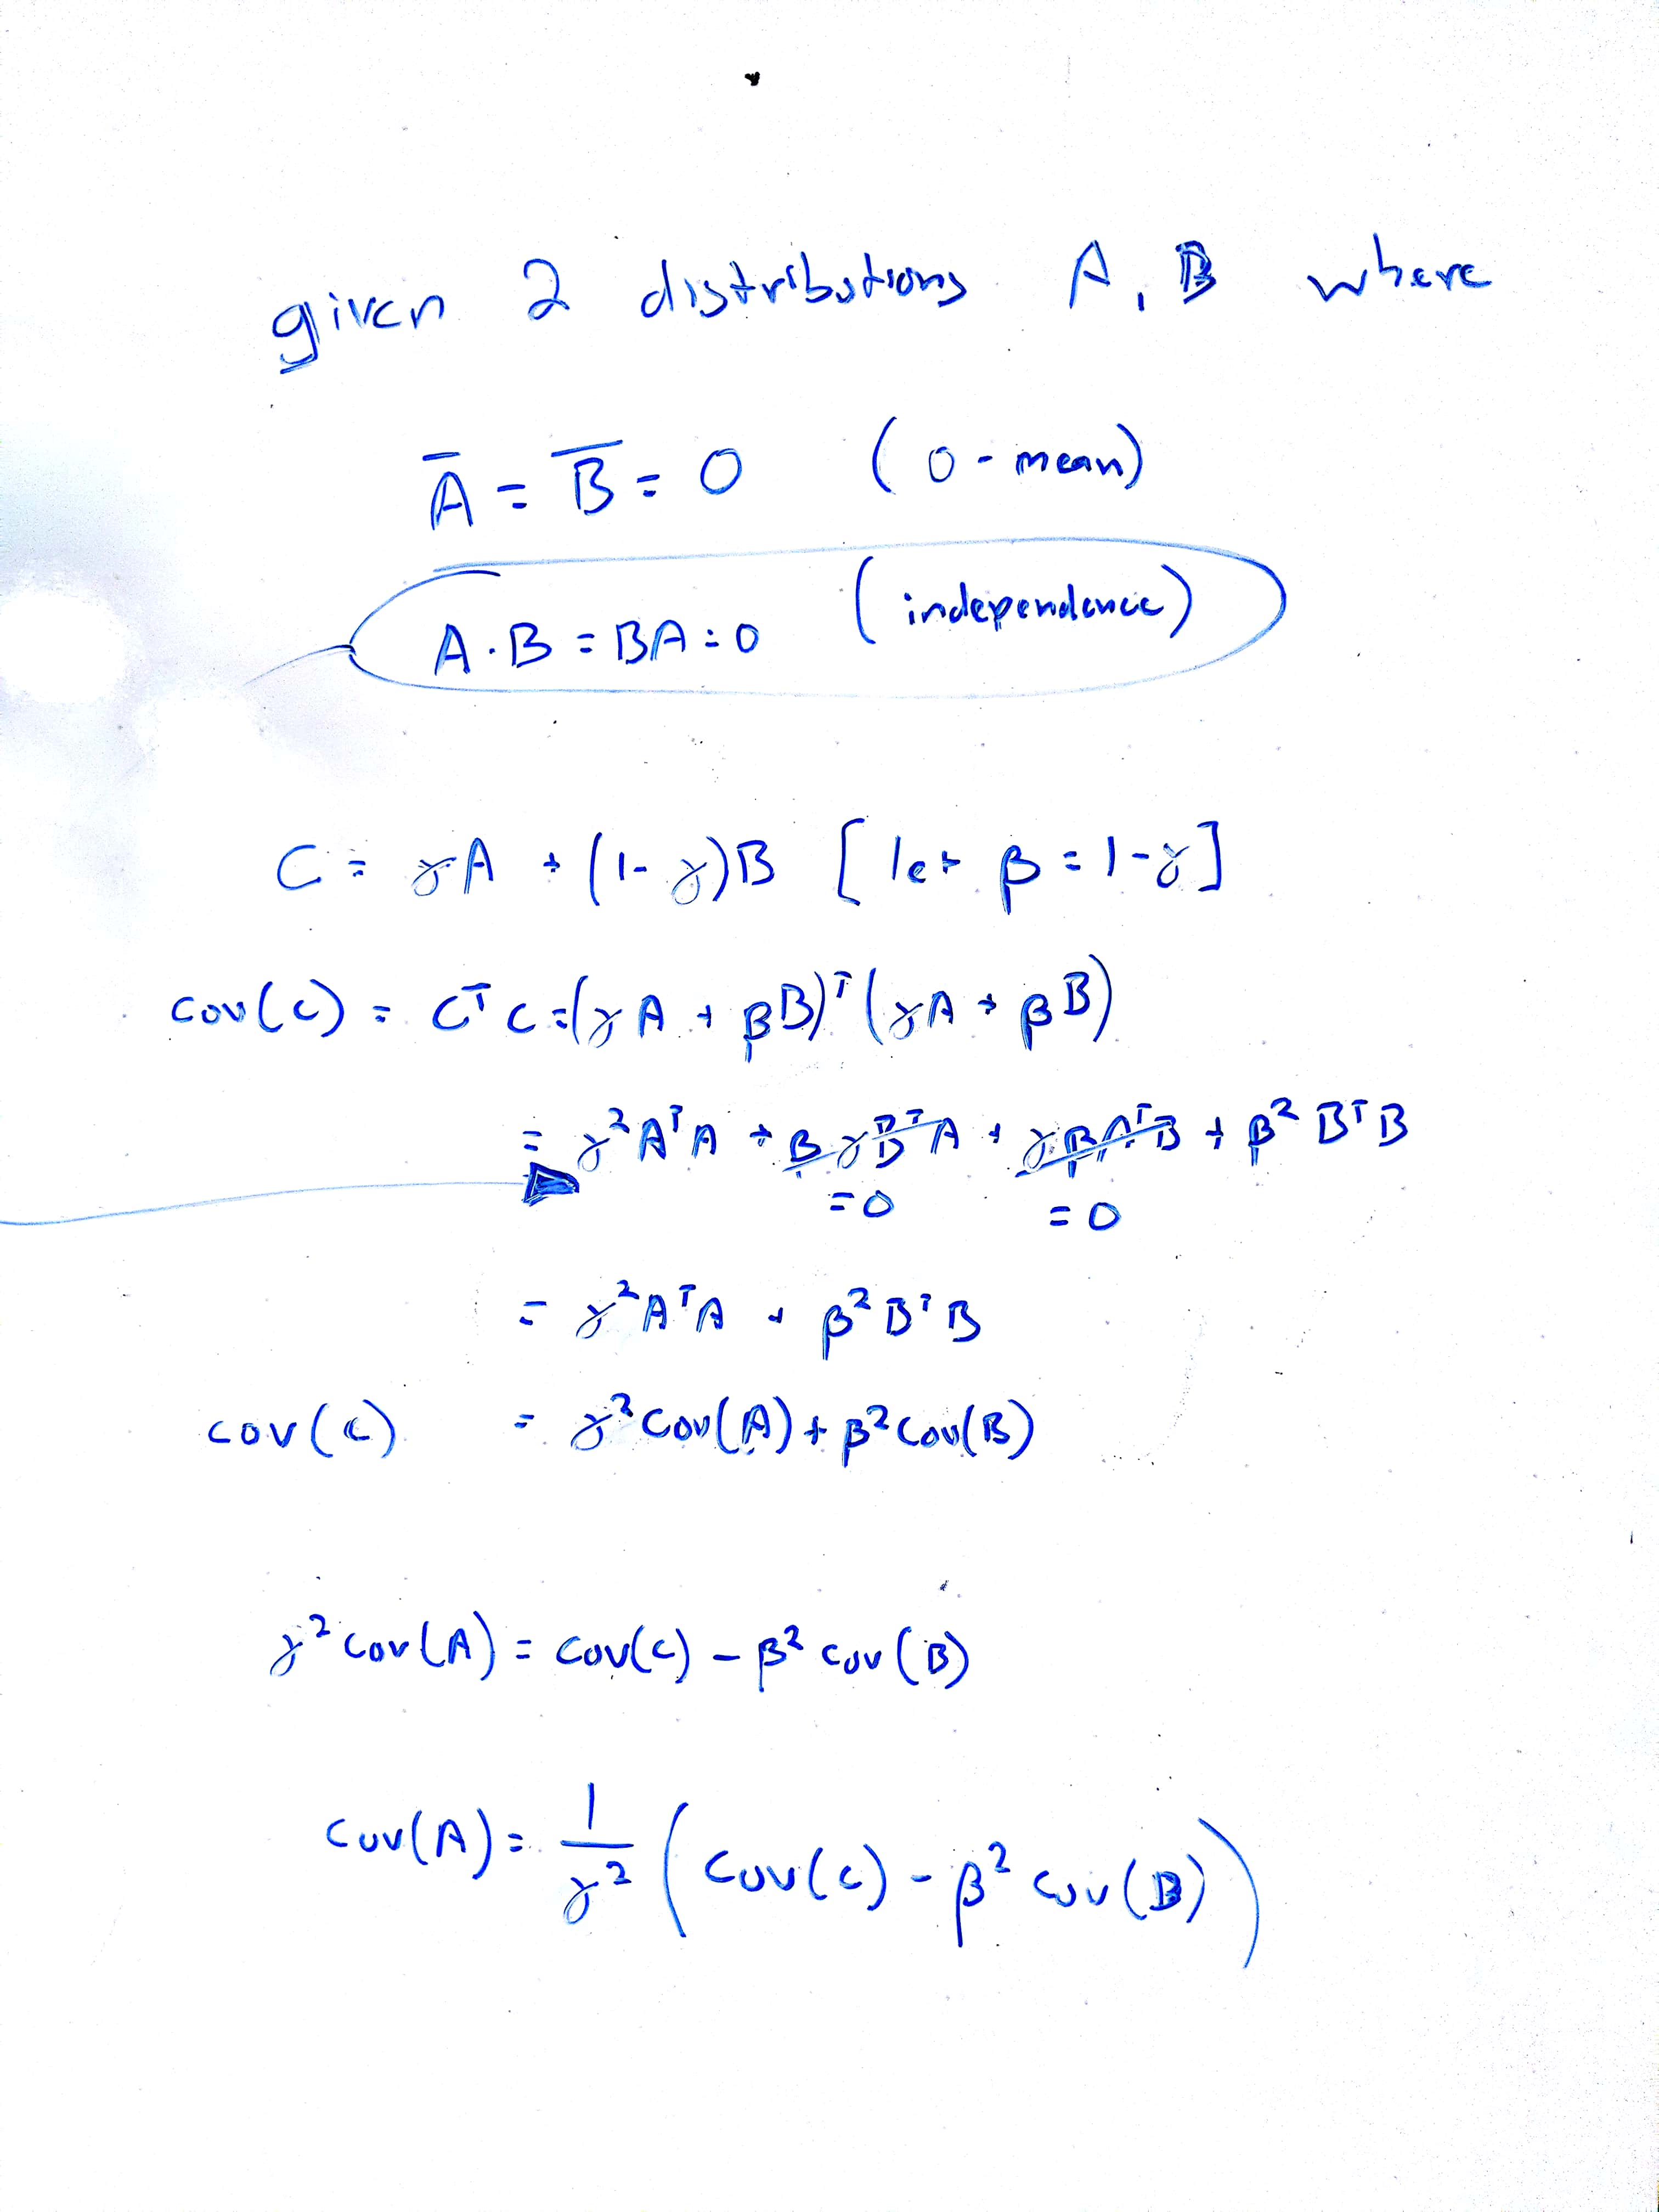 given 2 distributions A, B where
A̅ = B̅ = 0 (0-mean)
A·B = BA = 0 (independence)
C = γA + (1-γ)B [let β = 1-γ]
cov(c) = Cᵀ C = (γA + βB)ᵀ(γA + βB)
= γ²AᵀA + βγBᵀA + γβAᵀB + β²BᵀB
=0 =0
= γ²AᵀA + β²BᵀB
cov(c) = γ²cov(A) + β²cov(B)
γ²cov(A) = cov(c) - β² cov(B)
cov(A) = 1/γ² (cov(c) - β² cov(B))